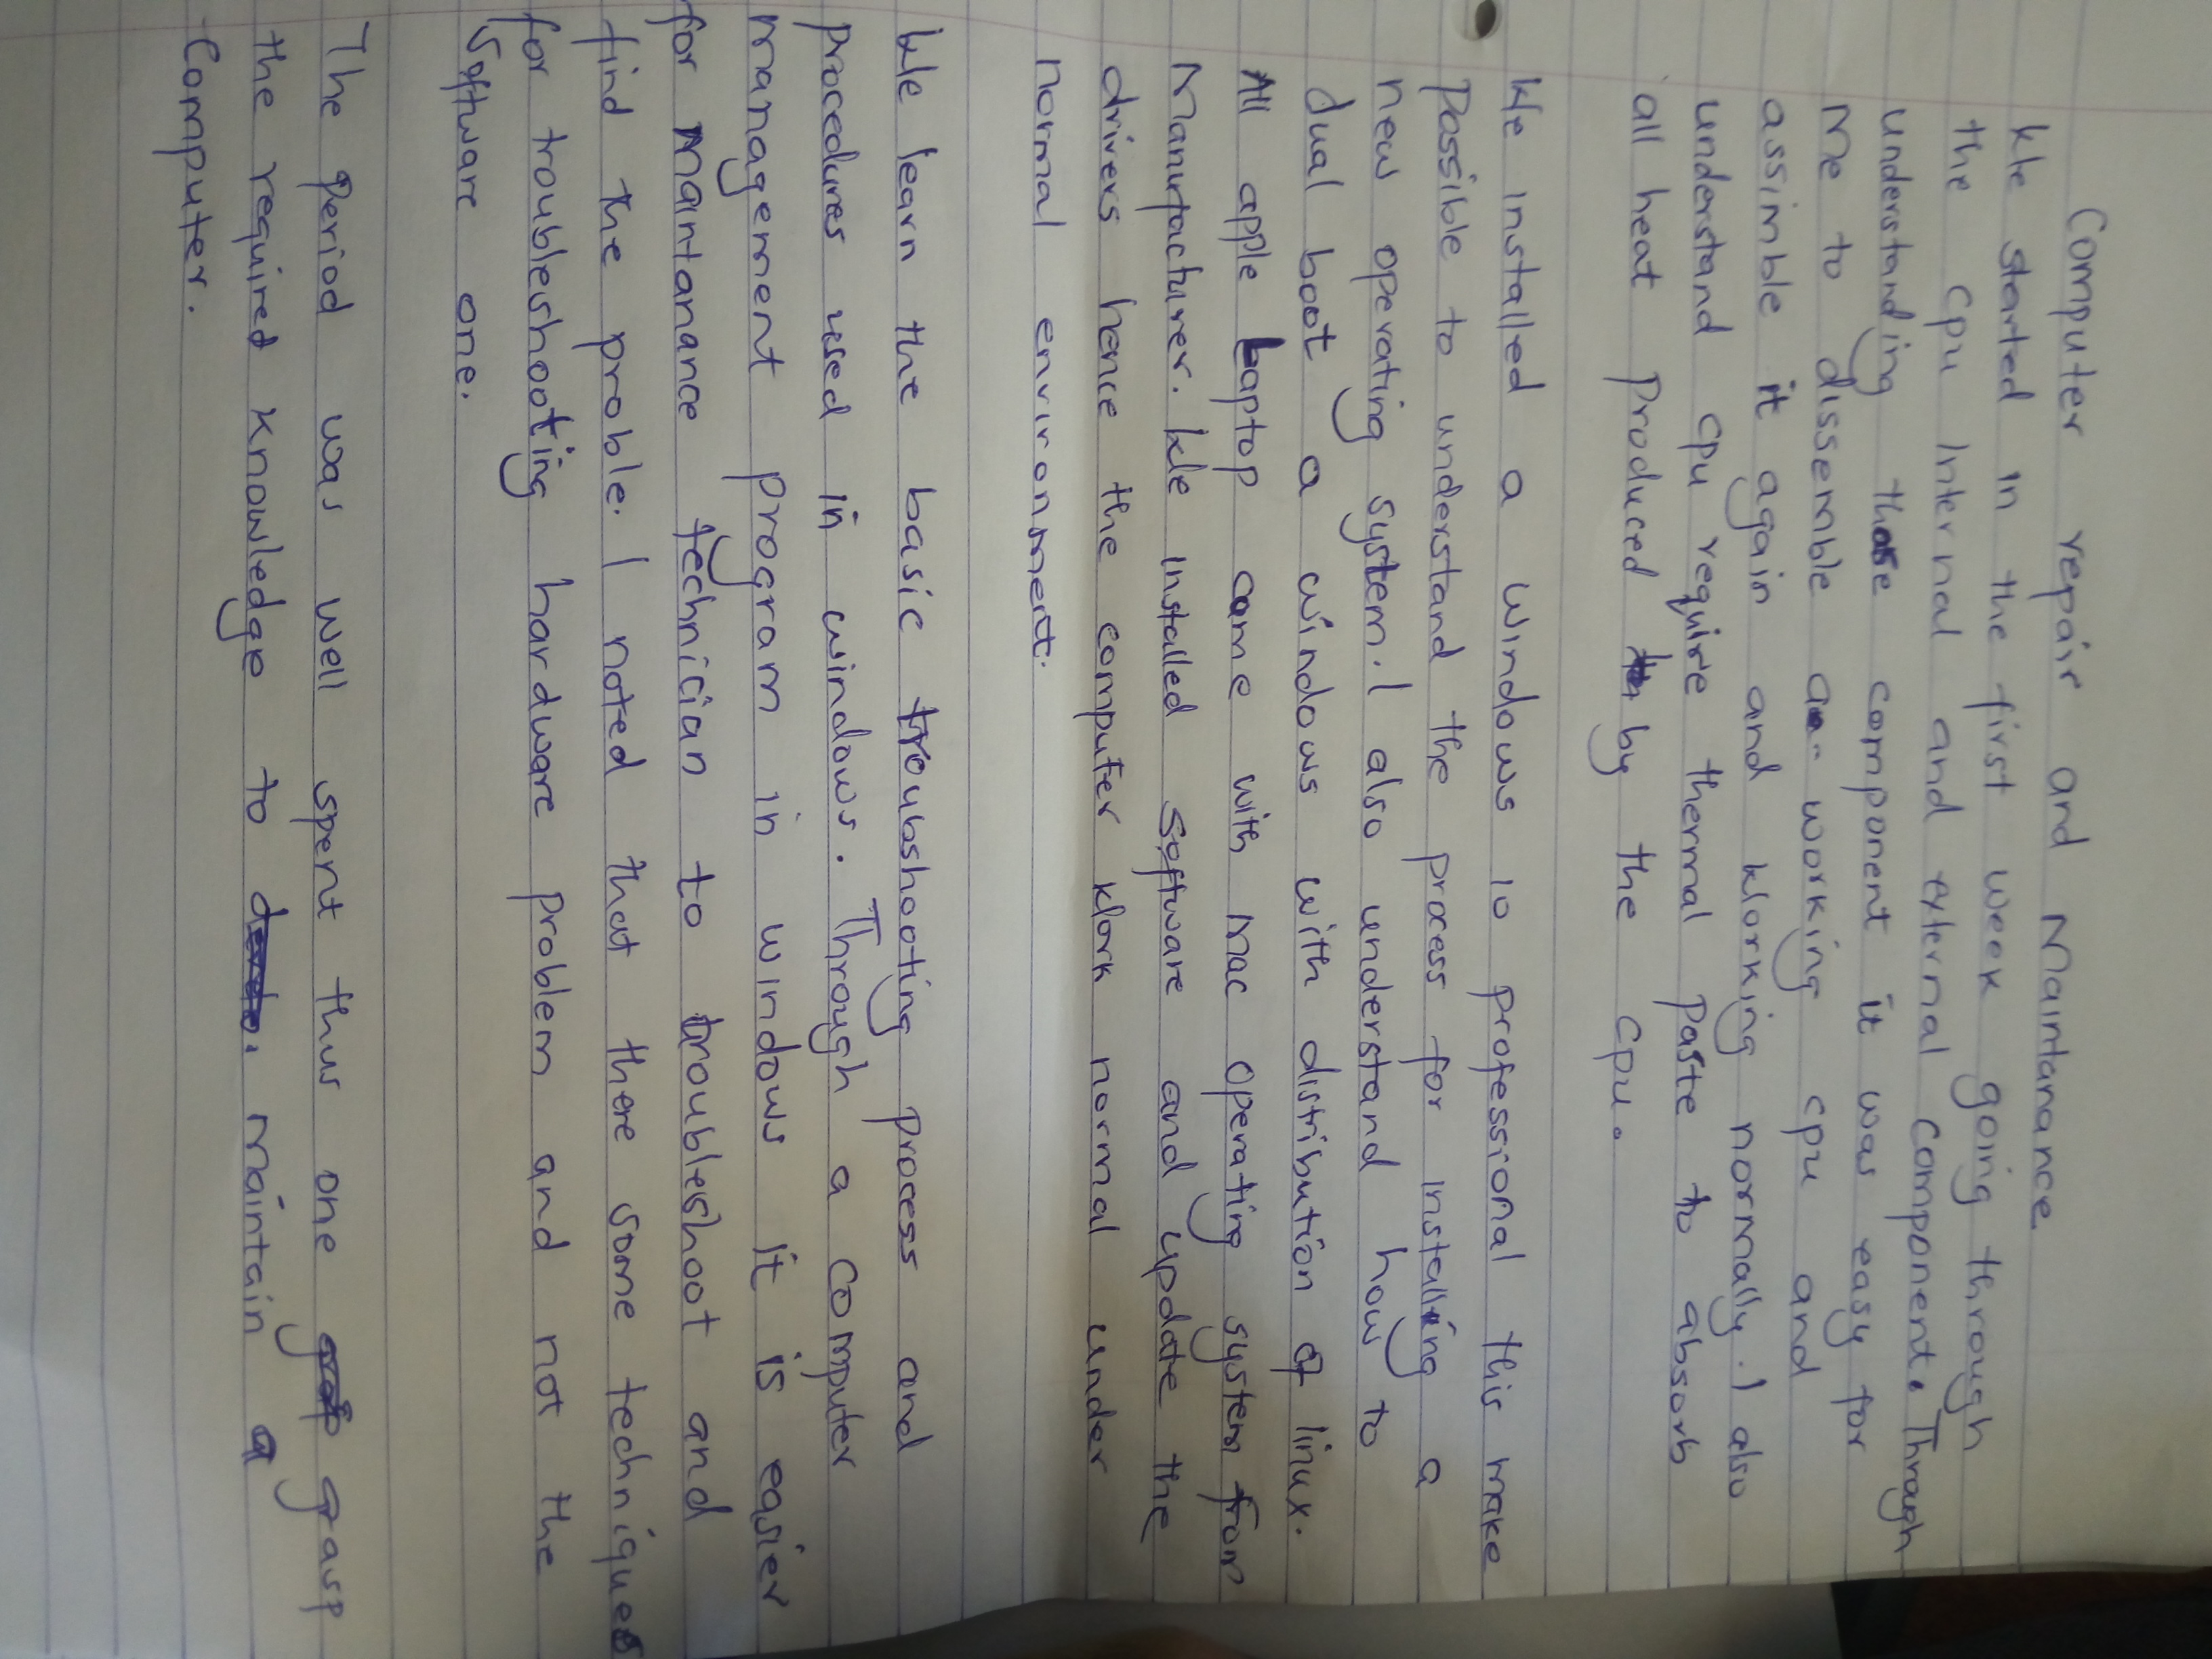 Computer repair and Maintanance
We started in the first week going through
the cpu Internal and external component. Through
understanding those component it was easy for
me to dissemble a working cpu and
assimble it again and Working normally. I also
understand cpu require thermal paste to absorb
all heat produced by the cpu.
We installed a Windows 10 professional this make
possible to understand the process for installing a
new operating system. I also understand how to
dual boot a windows with distribution of linux.
All apple Laptop came with mac operating system from
Manufacturer. We installed software and update the
drivers hence the computer Work normal under
normal environment.
We learn the basic troubshooting process and
procedures used in windows. Through a computer
management program in windows it is easier
for maintanance technician to troubleshoot and
find the proble. I noted that there some techniques
for troubleshooting hardware problem and not the
Software one.
The Period was well spent thus one grasp
the required knowledge to maintain a
Computer.